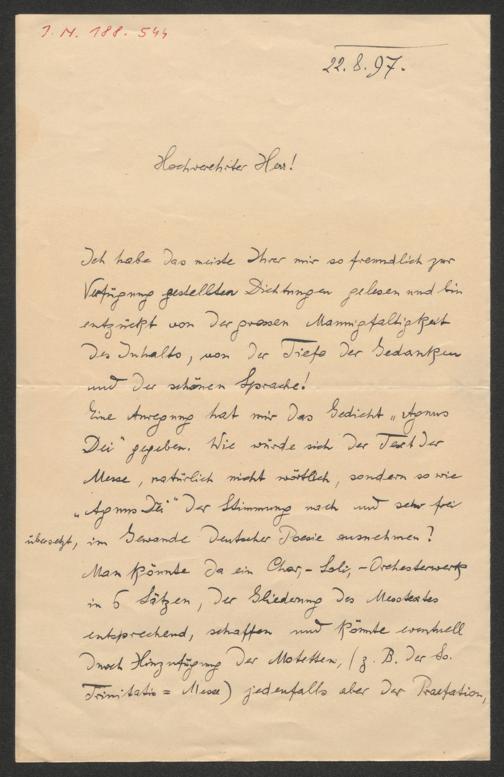 J. N. 188.544
22.8.97.
Hochverehrter Herr!
Ich habe das meiste Ihrer mir so freundlich zur
Verfügung gestellten Dichtungen gelesen und bin
entzückt von der grossen Mannigfaltigkeit
des Inhalts, von der Tiefe der Gedanken
und der schönen Sprache!
Eine Anregung hat mir das Gedicht „Agnus
Dei" gegeben. Wie würde sich der Text der
Messe, natürlich nicht wörtlich, sondern so wie
„Agnus Dei" der Stimmung nach und sehr frei
übersetzt, im Gewande deutscher Poesie ausnehmen?
Man könnte da ein Chor,- Soli,- Orchesterwerk
in 6 Sätzen, der Gliederung des Messtextes
entsprechend, schaffen und könnte eventuell
durch Hinzufügung der Motetten, (z. B. der
Trinitatis = Messe) jedenfalls aber der Praefation,